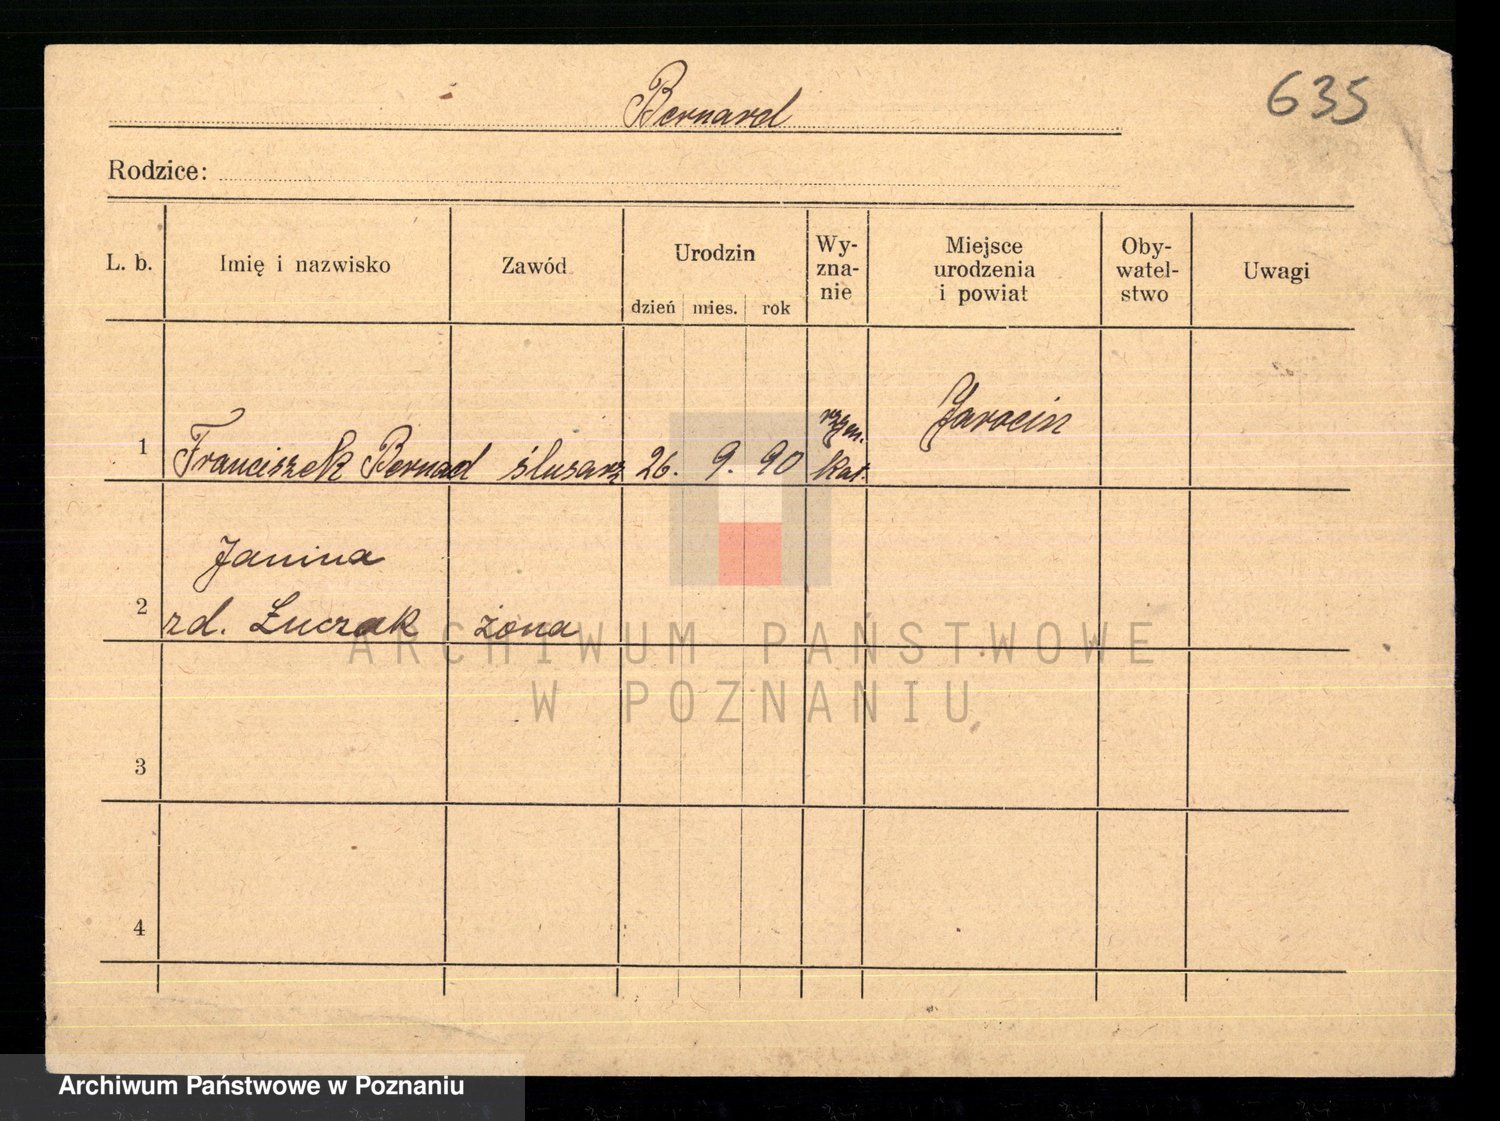 Bernard
635
Rodzice:
L. b. Imię i nazwisko Zawód Urodzin dzień mies. rok Wy-
zna-
nie Miejsce
urodzenia
i powiat Oby-
watel-
stwo Uwagi
1 Franciszek Bernad ślusarz 26. 9. 90 rzym.
kat. Jarocin
2 Janina
zd. Łuczak żona
3
4
ARCHIWUM PAŃSTWOWE
W POZNANIU
Archiwum Państwowe w Poznaniu